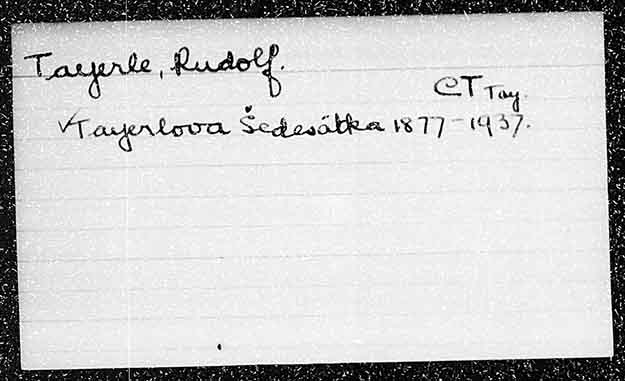 Tayerle, Rudolf.
CT Tay.
✓Tayerlova Šedesátka 1877-1937.